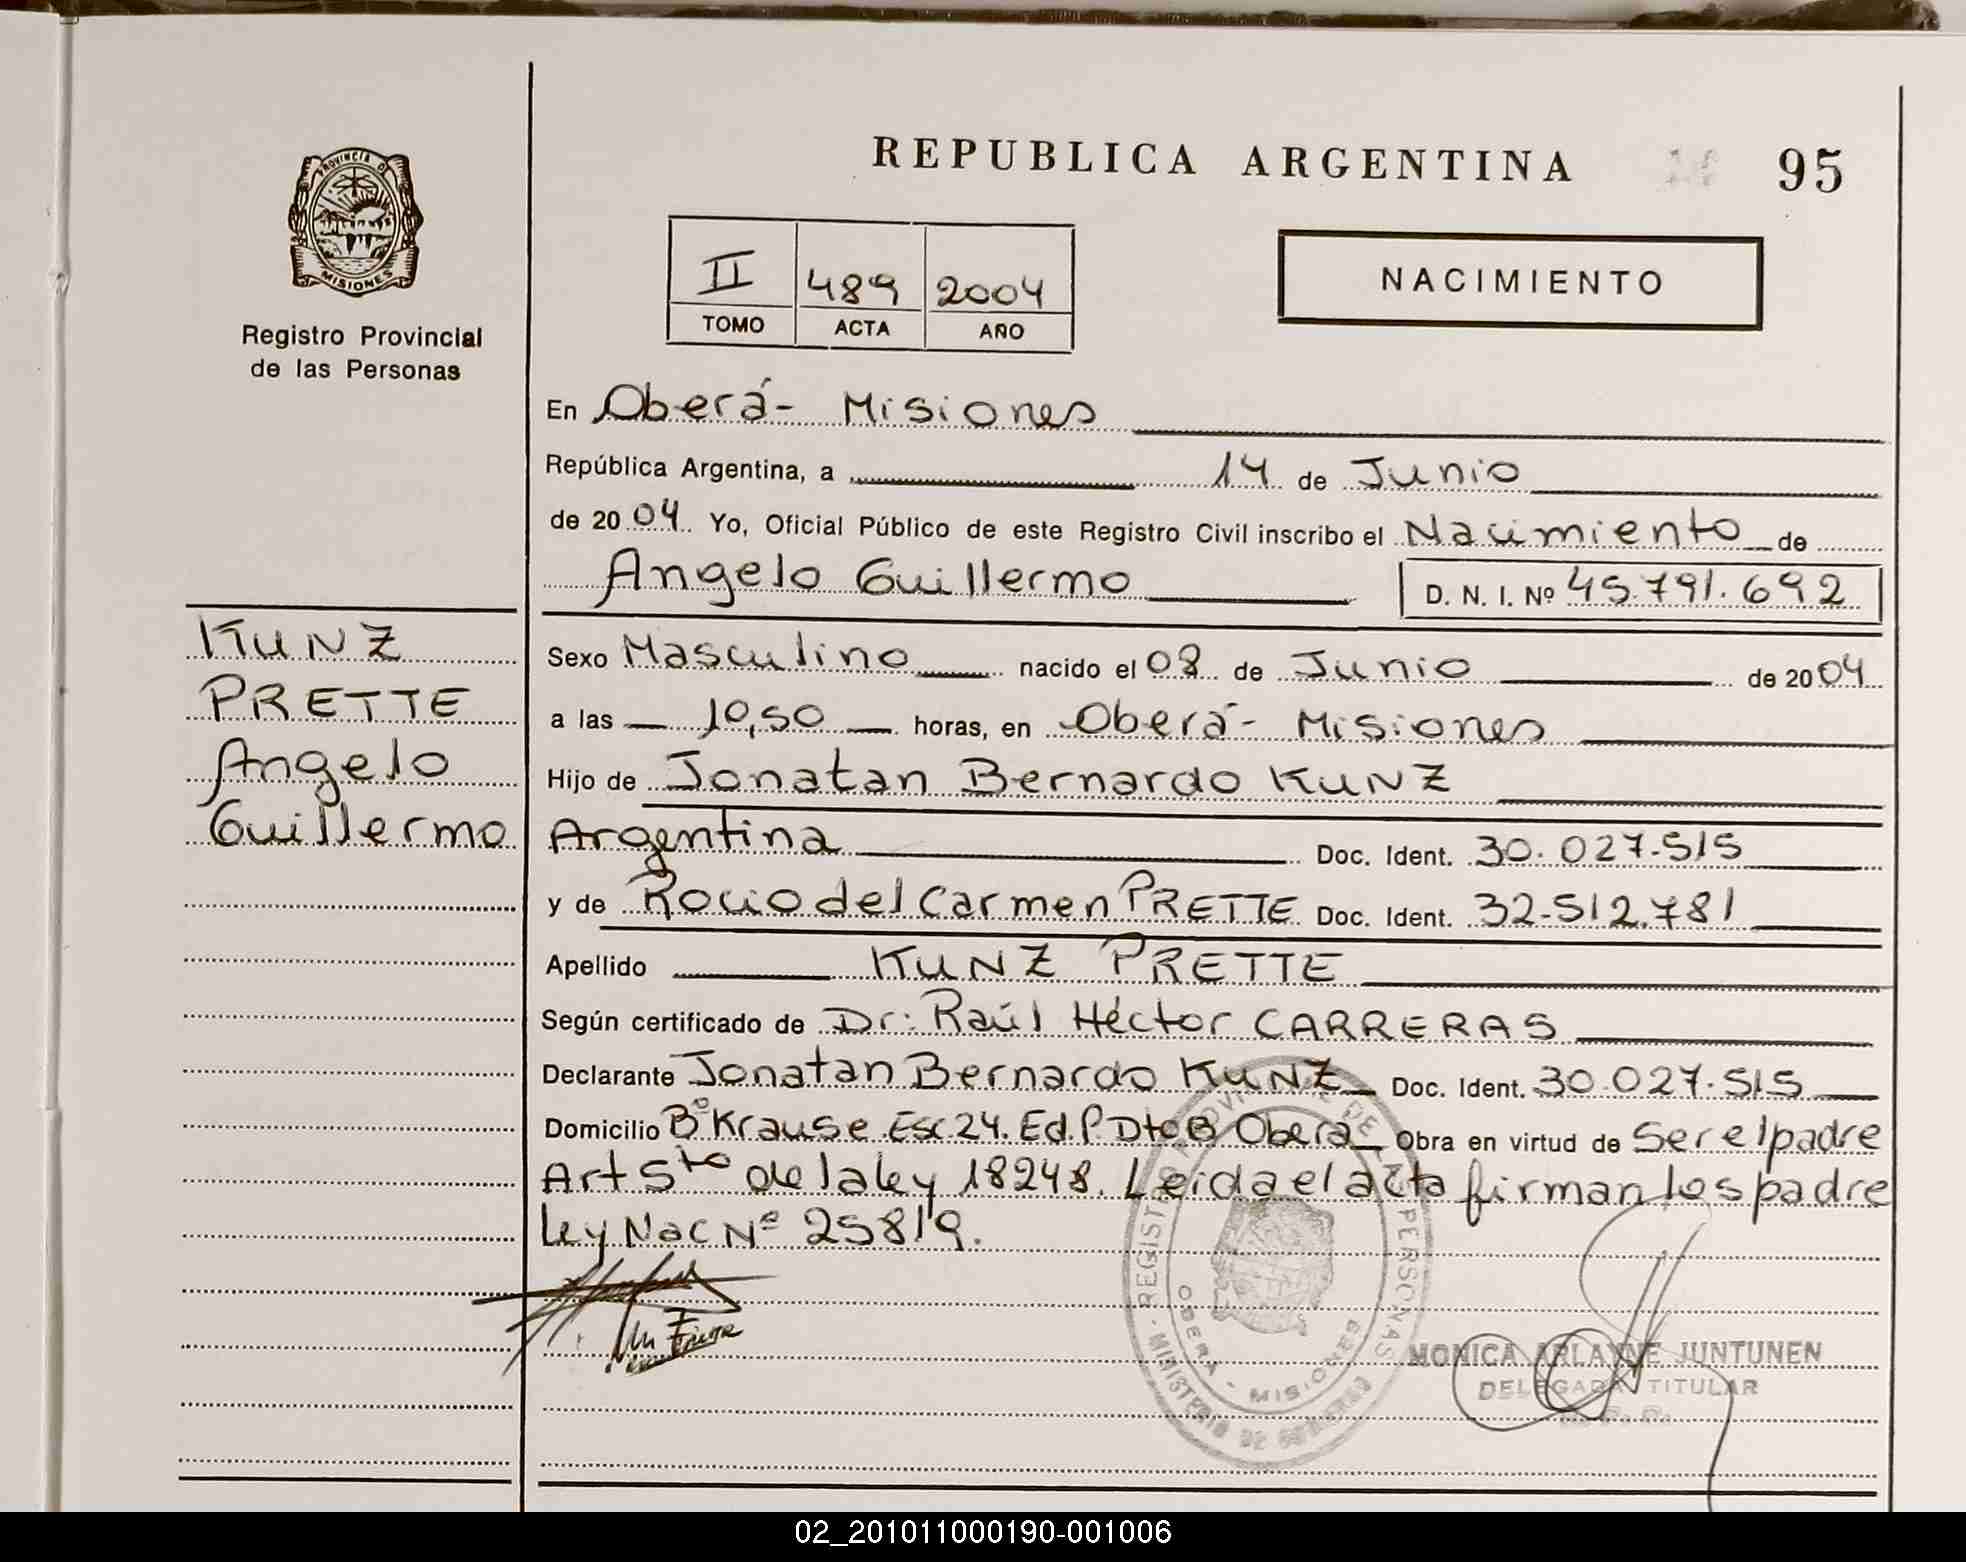 REPUBLICA ARGENTINA 95
PROVINCIA DE
MISIONES
Registro Provincial
de las Personas
II 489 2004
TOMO ACTA AÑO
NACIMIENTO
En Oberá - Misiones
República Argentina, a 14 de Junio
de 2004 Yo, Oficial Público de este Registro Civil inscribo el Nacimiento de
Angelo Guillermo D. N. I. Nº 45.791.692
KUNZ
PRETTE
Angelo
Guillermo
Sexo Masculino nacido el 08 de Junio de 2004
a las 10,50 horas, en Oberá - Misiones
Hijo de Jonatan Bernardo KUNZ
Argentina Doc. Ident. 30.027.515
y de Rocio del Carmen PRETTE Doc. Ident. 32.512.781
Apellido KUNZ PRETTE
Según certificado de Dr: Raúl Héctor CARRERAS
Declarante Jonatan Bernardo KUNZ Doc. Ident. 30.027.515
Domicilio Bº Krause Esc 24. Ed. P. Dto B Oberá Obra en virtud de Ser el padre
Art 5to de la ley 18248. Leida el acta firman los padre
Ley Nac Nº 25819.
REGISTRO PROVINCIAL DE LAS PERSONAS
OBERA - MISIONES
MINISTERIO DE GOBIERNO
MONICA ARLAYNE JUNTUNEN
DELEGADA TITULAR
02_201011000190-001006